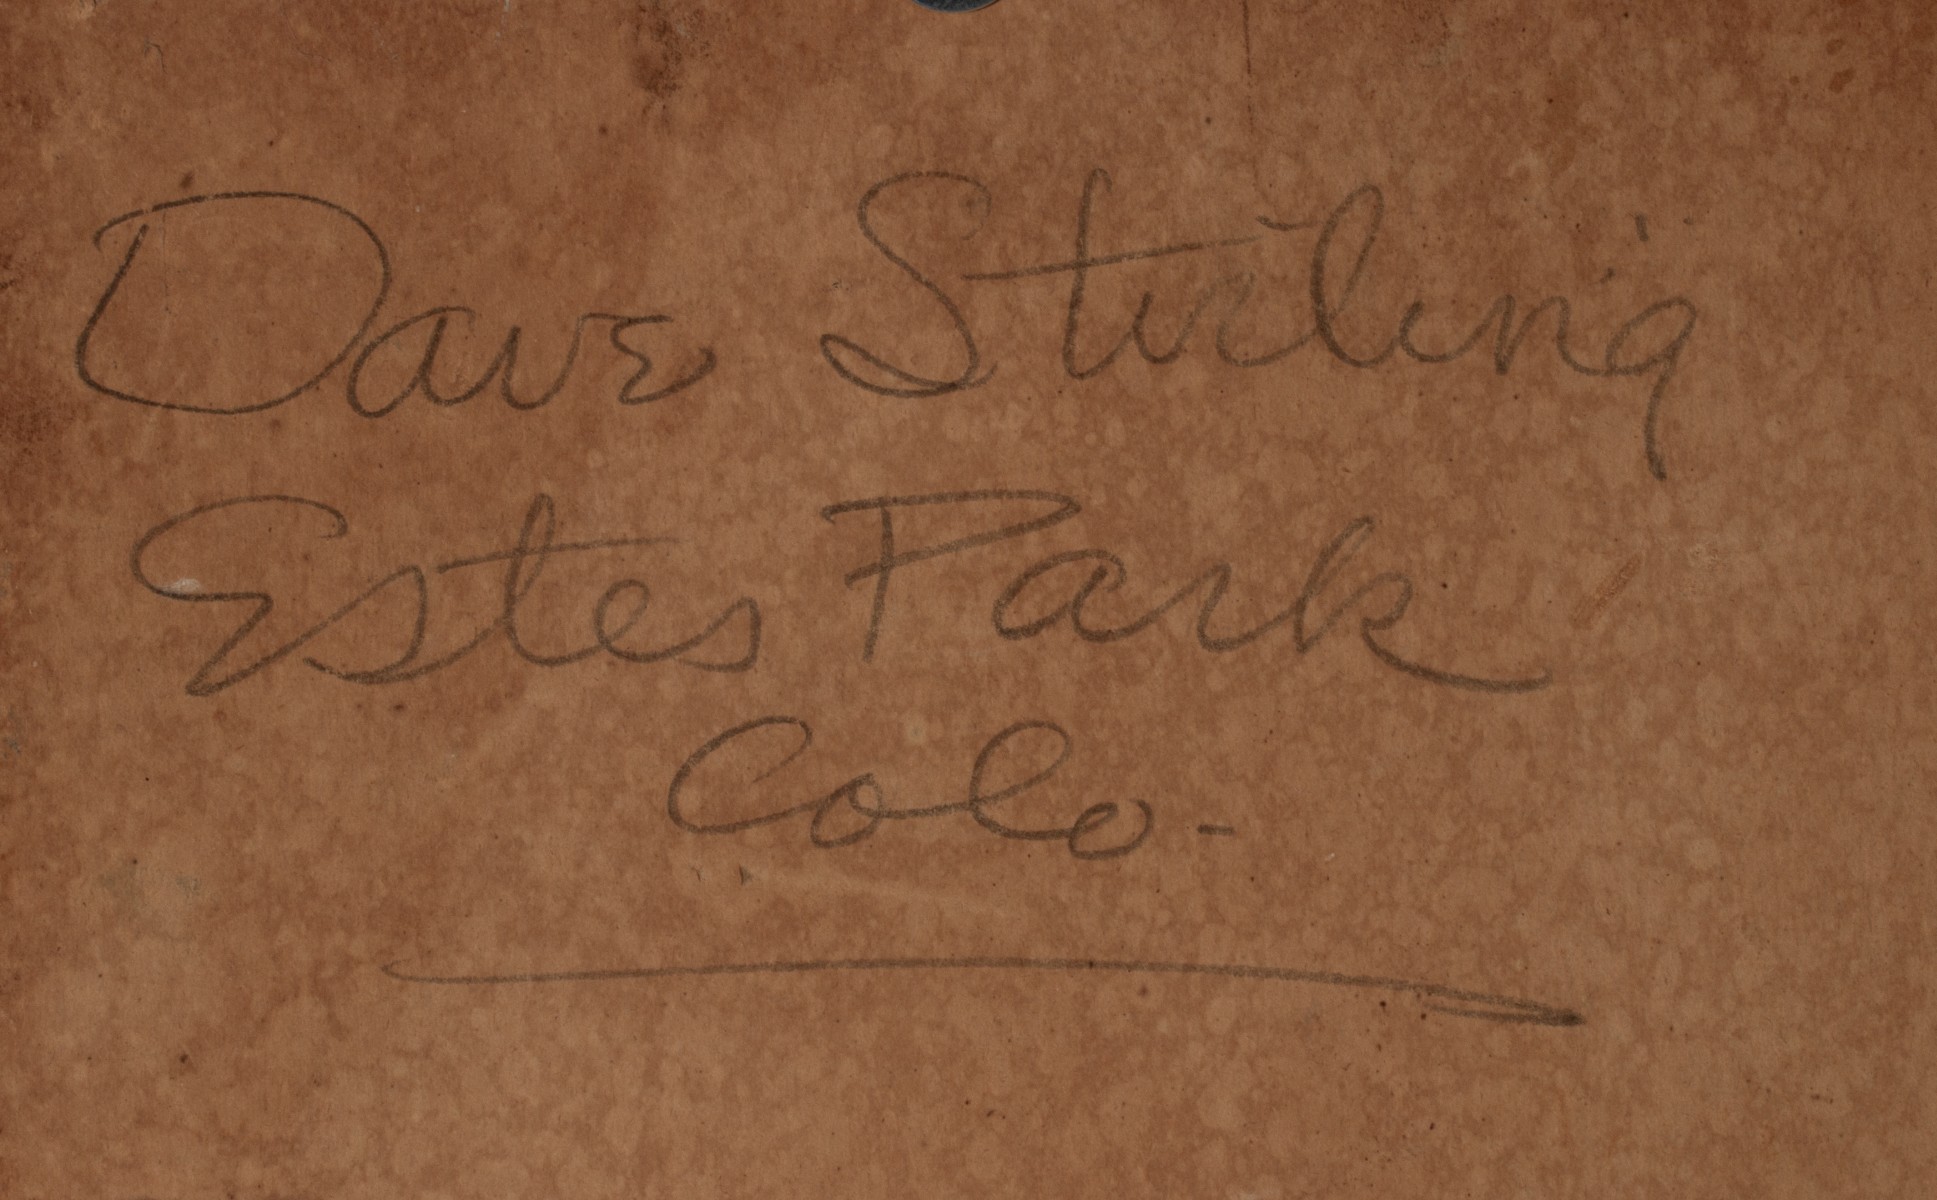 Dave Stirling
Estes Park
Colo-